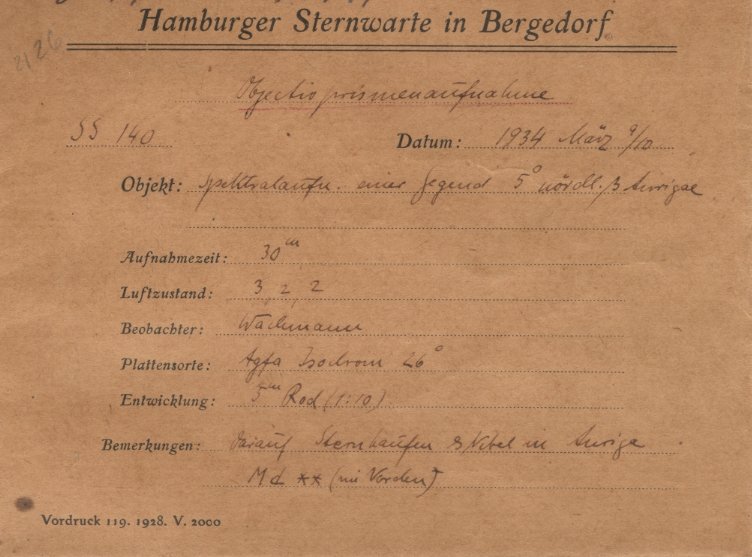 2126
Hamburger Sternwarte in Bergedorf
Objectivprismenaufnahme
SS 140
Datum: 1934 März 9/10
Objekt: Spektralaufn. einer Gegend 5° nördl. β Aurigae
Aufnahmezeit: 30m
Luftzustand: 3, 2, 2
Beobachter: Wachmann
Plattensorte: Agfa Isochrom 26°
Entwicklung: 5m Rod (1:10)
Bemerkungen: Darauf Sternhaufen & Nebel in Auriga
Md ** (mi Vorden)
Vordruck 119. 1928. V. 2000